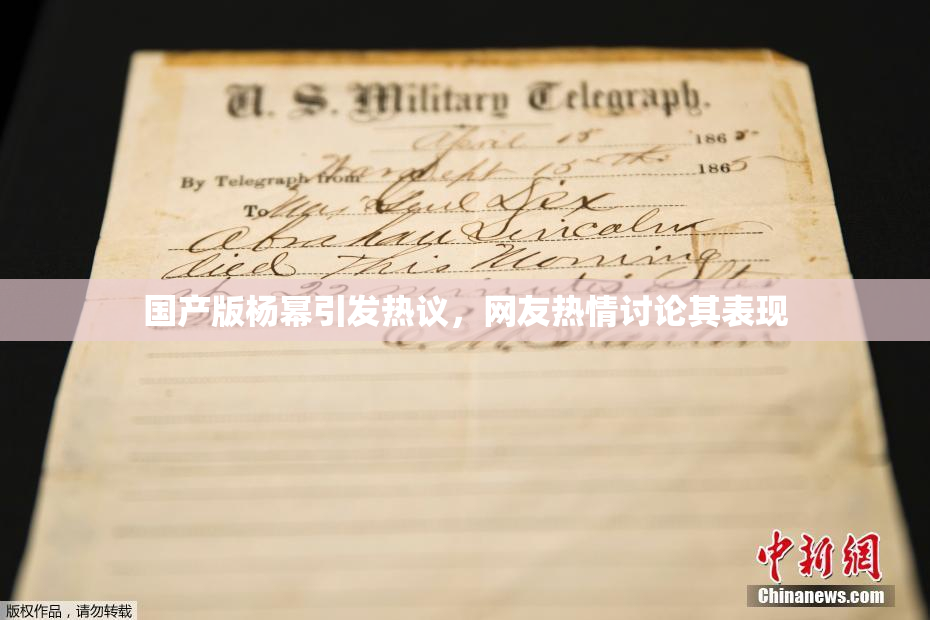 U. S. Military Telegraph.
April 15 1865
By Telegraph from War Dept 15th 1865
To Maj Genl Dix
Abraham Lincoln
died This Morning
at 22 minutes after
国产版杨幂引发热议，网友热情讨论其表现
中新网
Chinanews.com
版权作品，请勿转载